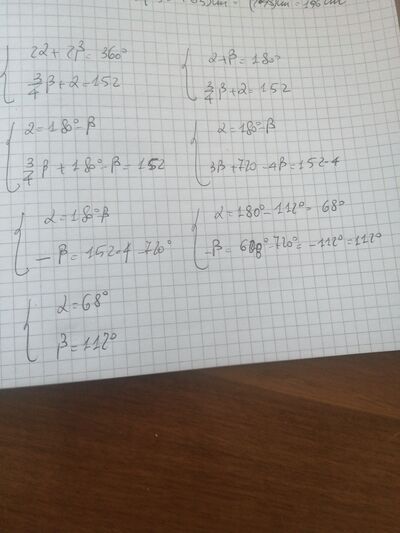 2α + 2β = 360°
3/4 β + α = 152
α + β = 180°
3/4 β + α = 152
α = 180° - β
3/4 β + 180° - β = 152
α = 180° - β
3β + 720 - 4β = 152 · 4
α = 180° β
- β = 152 · 4 - 720°
α = 180° - 112° = 68°
-β = 608° - 720° = -112° = 112°
α = 68°
β = 112°